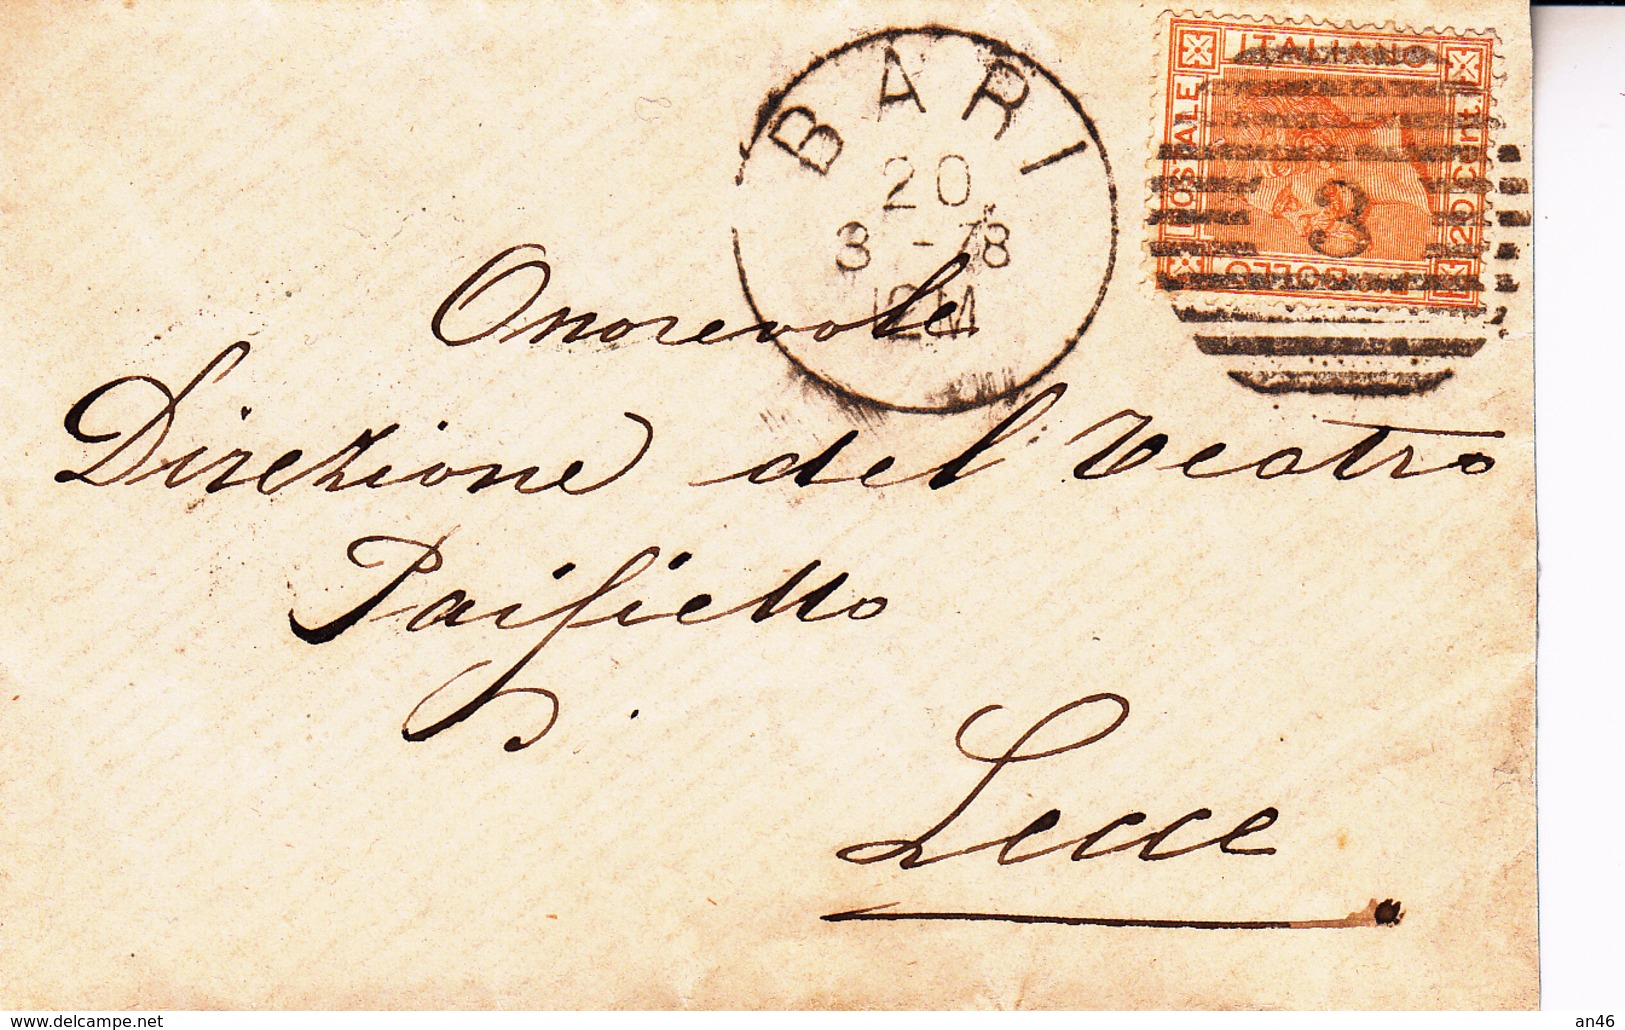 BARI
20
3 - 78
12M
POSTALE ITALIANO
20 Cent.
BOLLO
3
Onorevole
Direzione del Teatro
Paisiello
Lecce.
www.delcampe.net
an46